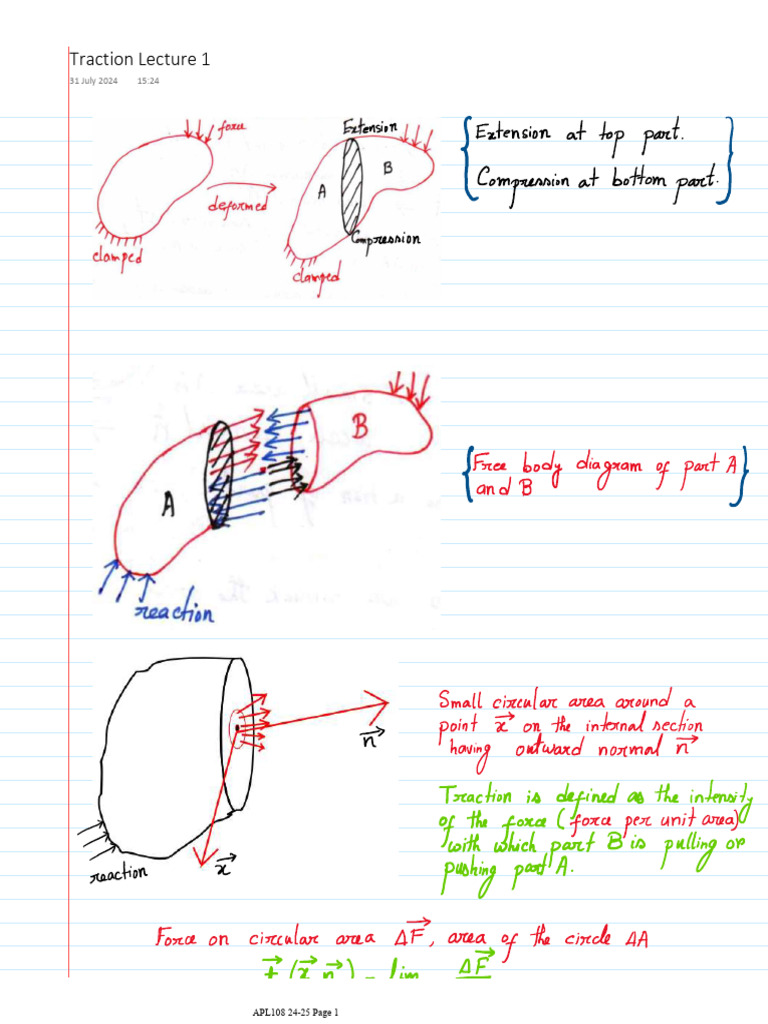 Traction Lecture 1
31 July 2024 15:24
force
deformed
clamped
Extension
A
B
Compression
clamped
Extension at top part.
Compression at bottom part.
A
B
reaction
Free body diagram of part A
and B
n
x
reaction
Small circular area around a
point x on the internal section
having outward normal n
Traction is defined as the intensity
of the force (force per unit area)
with which part B is pulling or
pushing part A.
Force on circular area ΔF, area of the circle ΔA
t (x n) = lim ΔF
APL108 24-25 Page 1